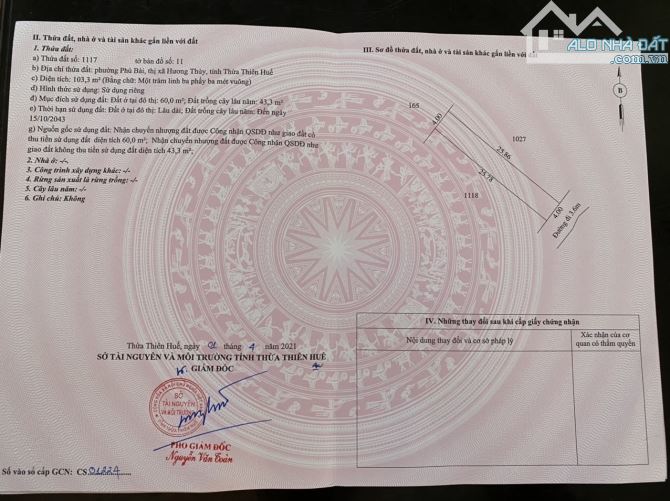 II. Thửa đất, nhà ở và tài sản khác gắn liền với đất
1. Thửa đất:
a) Thửa đất số: 1117 tờ bản đồ số: 11
b) Địa chỉ thửa đất: phường Phú Bài, thị xã Hương Thủy, tỉnh Thừa Thiên Huế
c) Diện tích: 103,3 m² (Bằng chữ: Một trăm linh ba phẩy ba mét vuông)
d) Hình thức sử dụng: Sử dụng riêng
đ) Mục đích sử dụng đất: Đất ở tại đô thị: 60,0 m²; Đất trồng cây lâu năm: 43,3 m²
e) Thời hạn sử dụng đất: Đất ở tại đô thị: Lâu dài; Đất trồng cây lâu năm: Đến ngày
15/10/2043
g) Nguồn gốc sử dụng đất: Nhận chuyển nhượng đất được Công nhận QSDĐ như giao đất có
thu tiền sử dụng đất diện tích 60,0 m²; Nhận chuyển nhượng đất được Công nhận QSDĐ như
giao đất không thu tiền sử dụng đất diện tích 43,3 m²;
2. Nhà ở: -/-
3. Công trình xây dựng khác: -/-
4. Rừng sản xuất là rừng trồng: -/-
5. Cây lâu năm: -/-
6. Ghi chú: Không
Thừa Thiên Huế, ngày 01 tháng 4 năm 2021
SỞ TÀI NGUYÊN VÀ MÔI TRƯỜNG TỈNH THỪA THIÊN HUẾ
GIÁM ĐỐC
SỞ
TÀI NGUYÊN
VÀ MÔI TRƯỜNG
PHÓ GIÁM ĐỐC
Nguyễn Văn Toàn
Số vào sổ cấp GCN: CS 01224
III. Sơ đồ thửa đất, nhà ở và tài sản khác gắn liền với đất
ALO NHÀ ĐẤT
B
165
4.00
1027
25.86
25.78
1118
4.00
Đường đi 3.6m
IV. Những thay đổi sau khi cấp giấy chứng nhận
Nội dung thay đổi và cơ sở pháp lý
Xác nhận của cơ
quan có thẩm quyền